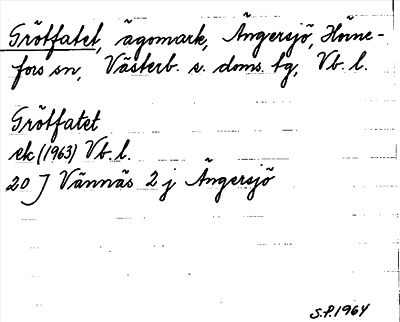 Grötfatet, ägomark, Ängersjö, Hörne-
fors sn, Västerb. s. doms. tg, Vb. l.
Grötfatet
ek (1963) Vb. l.
20 J Vännäs 2 j Ängersjö
S.P. 1964